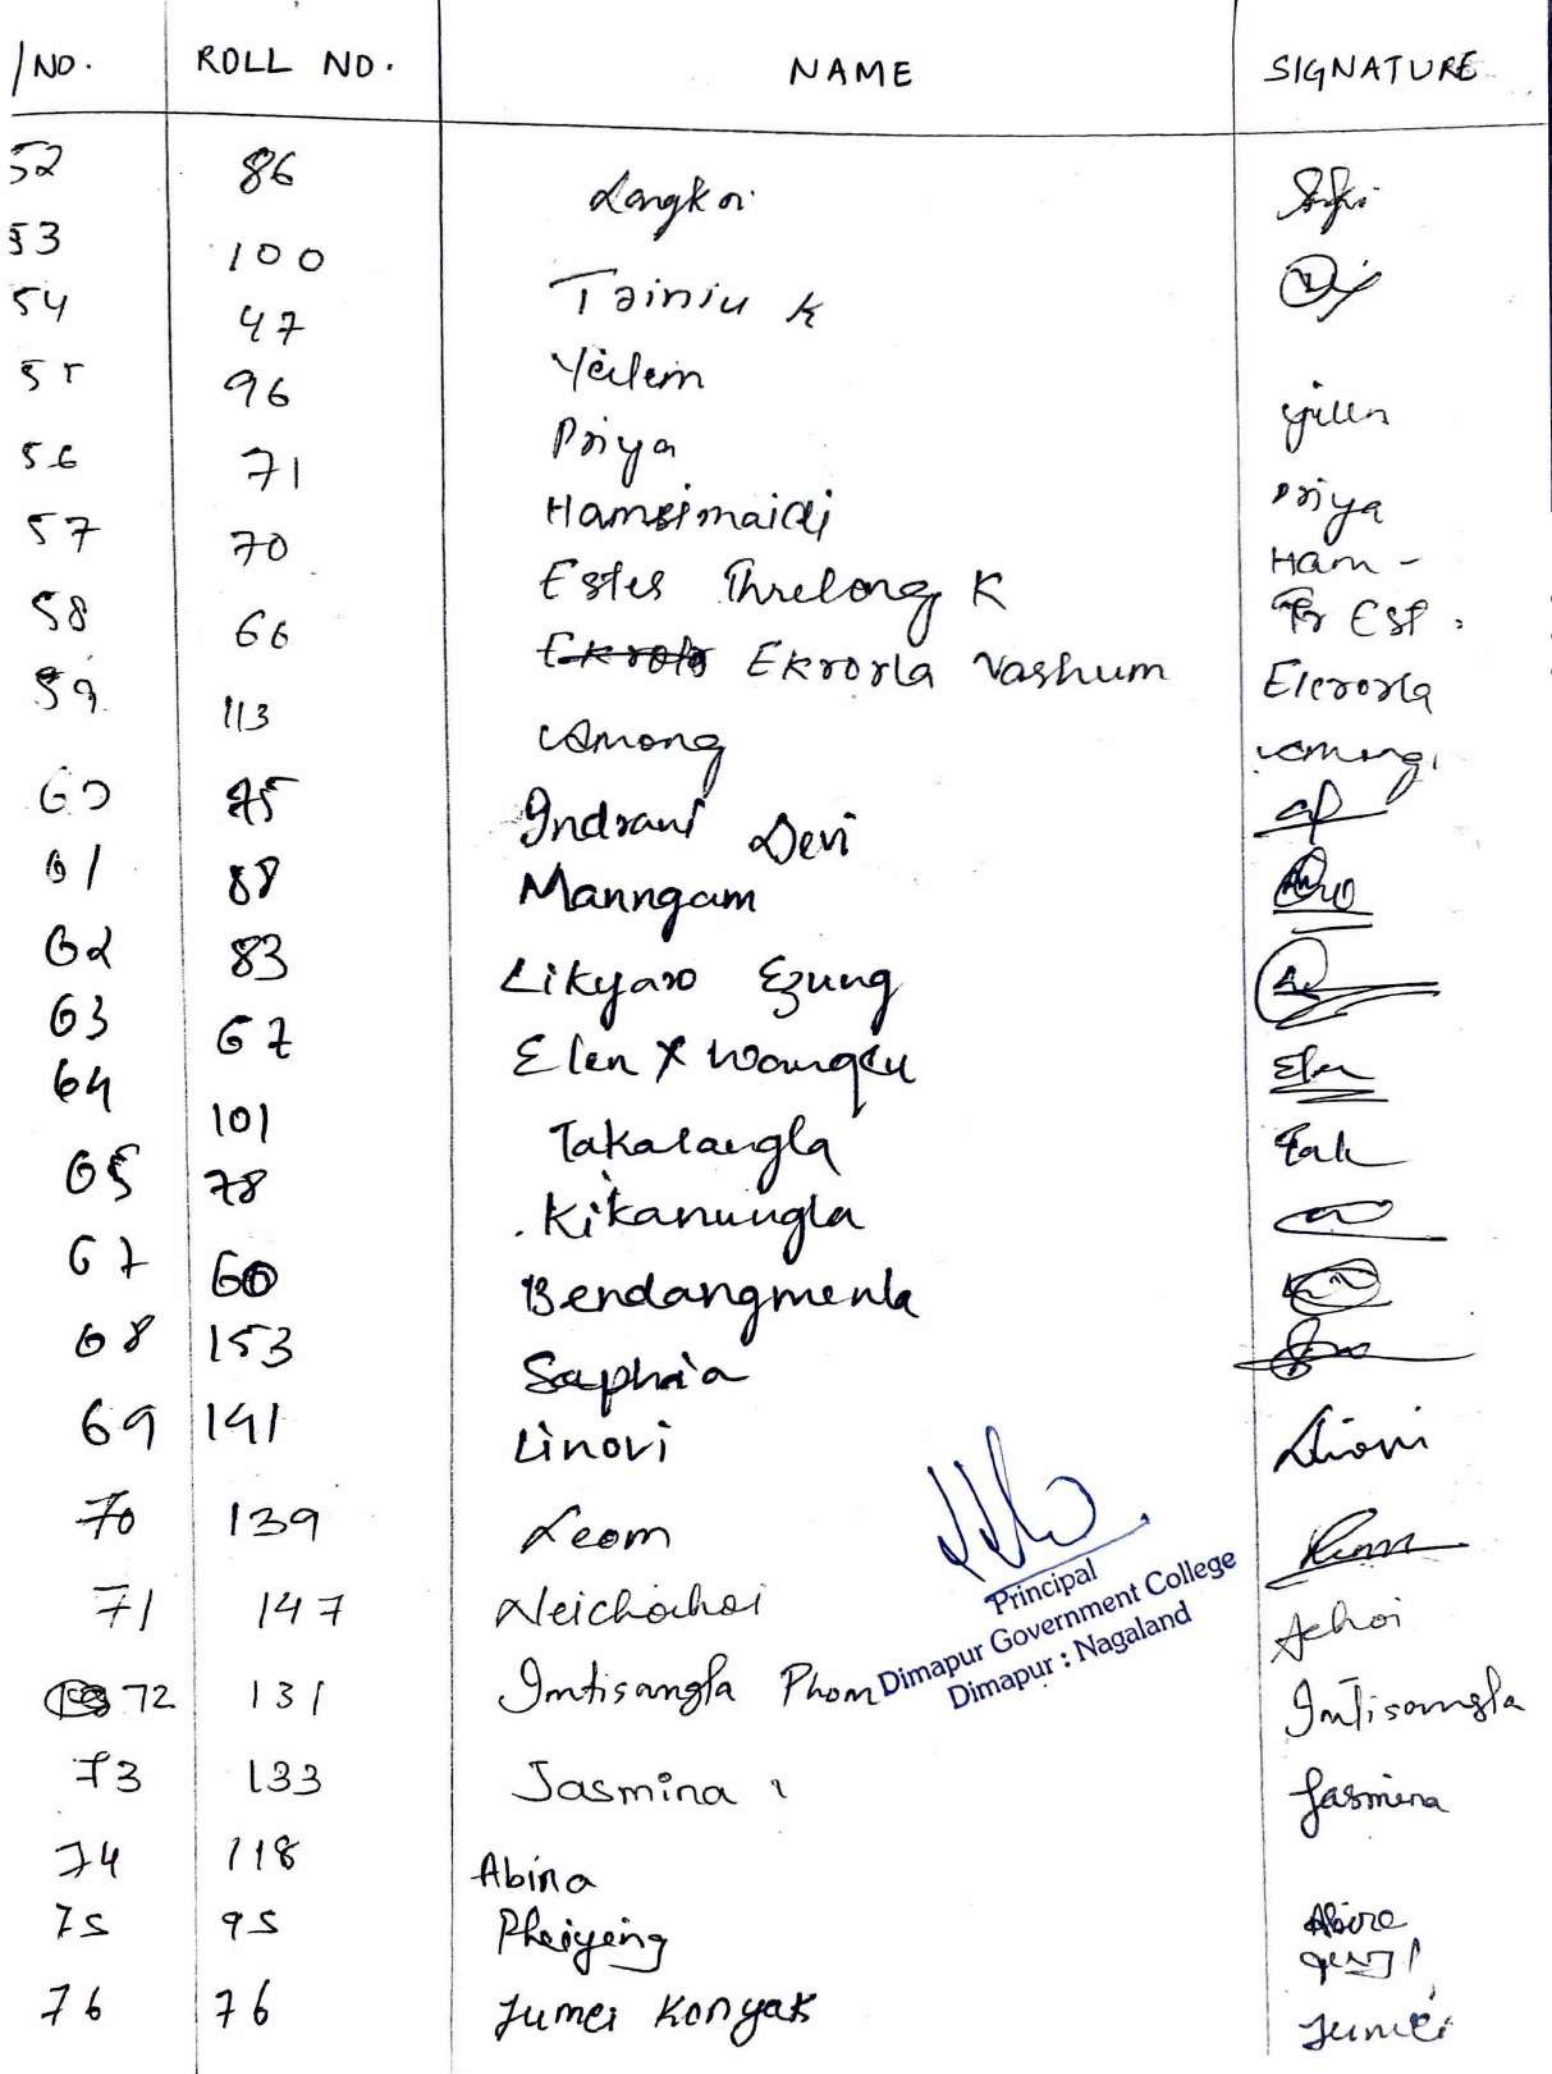 /NO. ROLL NO. NAME SIGNATURE
52 86 Langkoi
53 100 Tainiu K
54 47 Yeilem
55 96 Priya
56 71 Hamsimaidi Priya
57 70 Estes Threlong K Ham -
58 66 Ekrorla Vashum Est.
59 113 Among Ekrorla
60 75 Indrani Devi Among
61 88 Manngam
62 83 Likyaro Ezung
63 67 Elen Wangcu Elen
64 101 Takalangla Tak
65 78 Kikanungla
67 60 Bendangmenla
68 153 Saphia
69 141 Linovi Linovi
70 139 Leom
71 147 Neichohoi Achoi
72 131 Imtisangla Phom Imtisangla
73 133 Jasmina Jasmina
74 118 Abina
75 95 Pheiyeing Abina
76 76 Jumei Konyak Jumei
Principal
Dimapur Government College
Dimapur : Nagaland